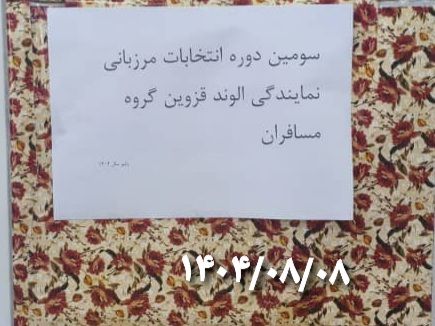 سومین دوره انتخابات مرزبانی
نمایندگی الوند قزوین گروه
مسافران
۱۴۰۴/۰۸/۰۸